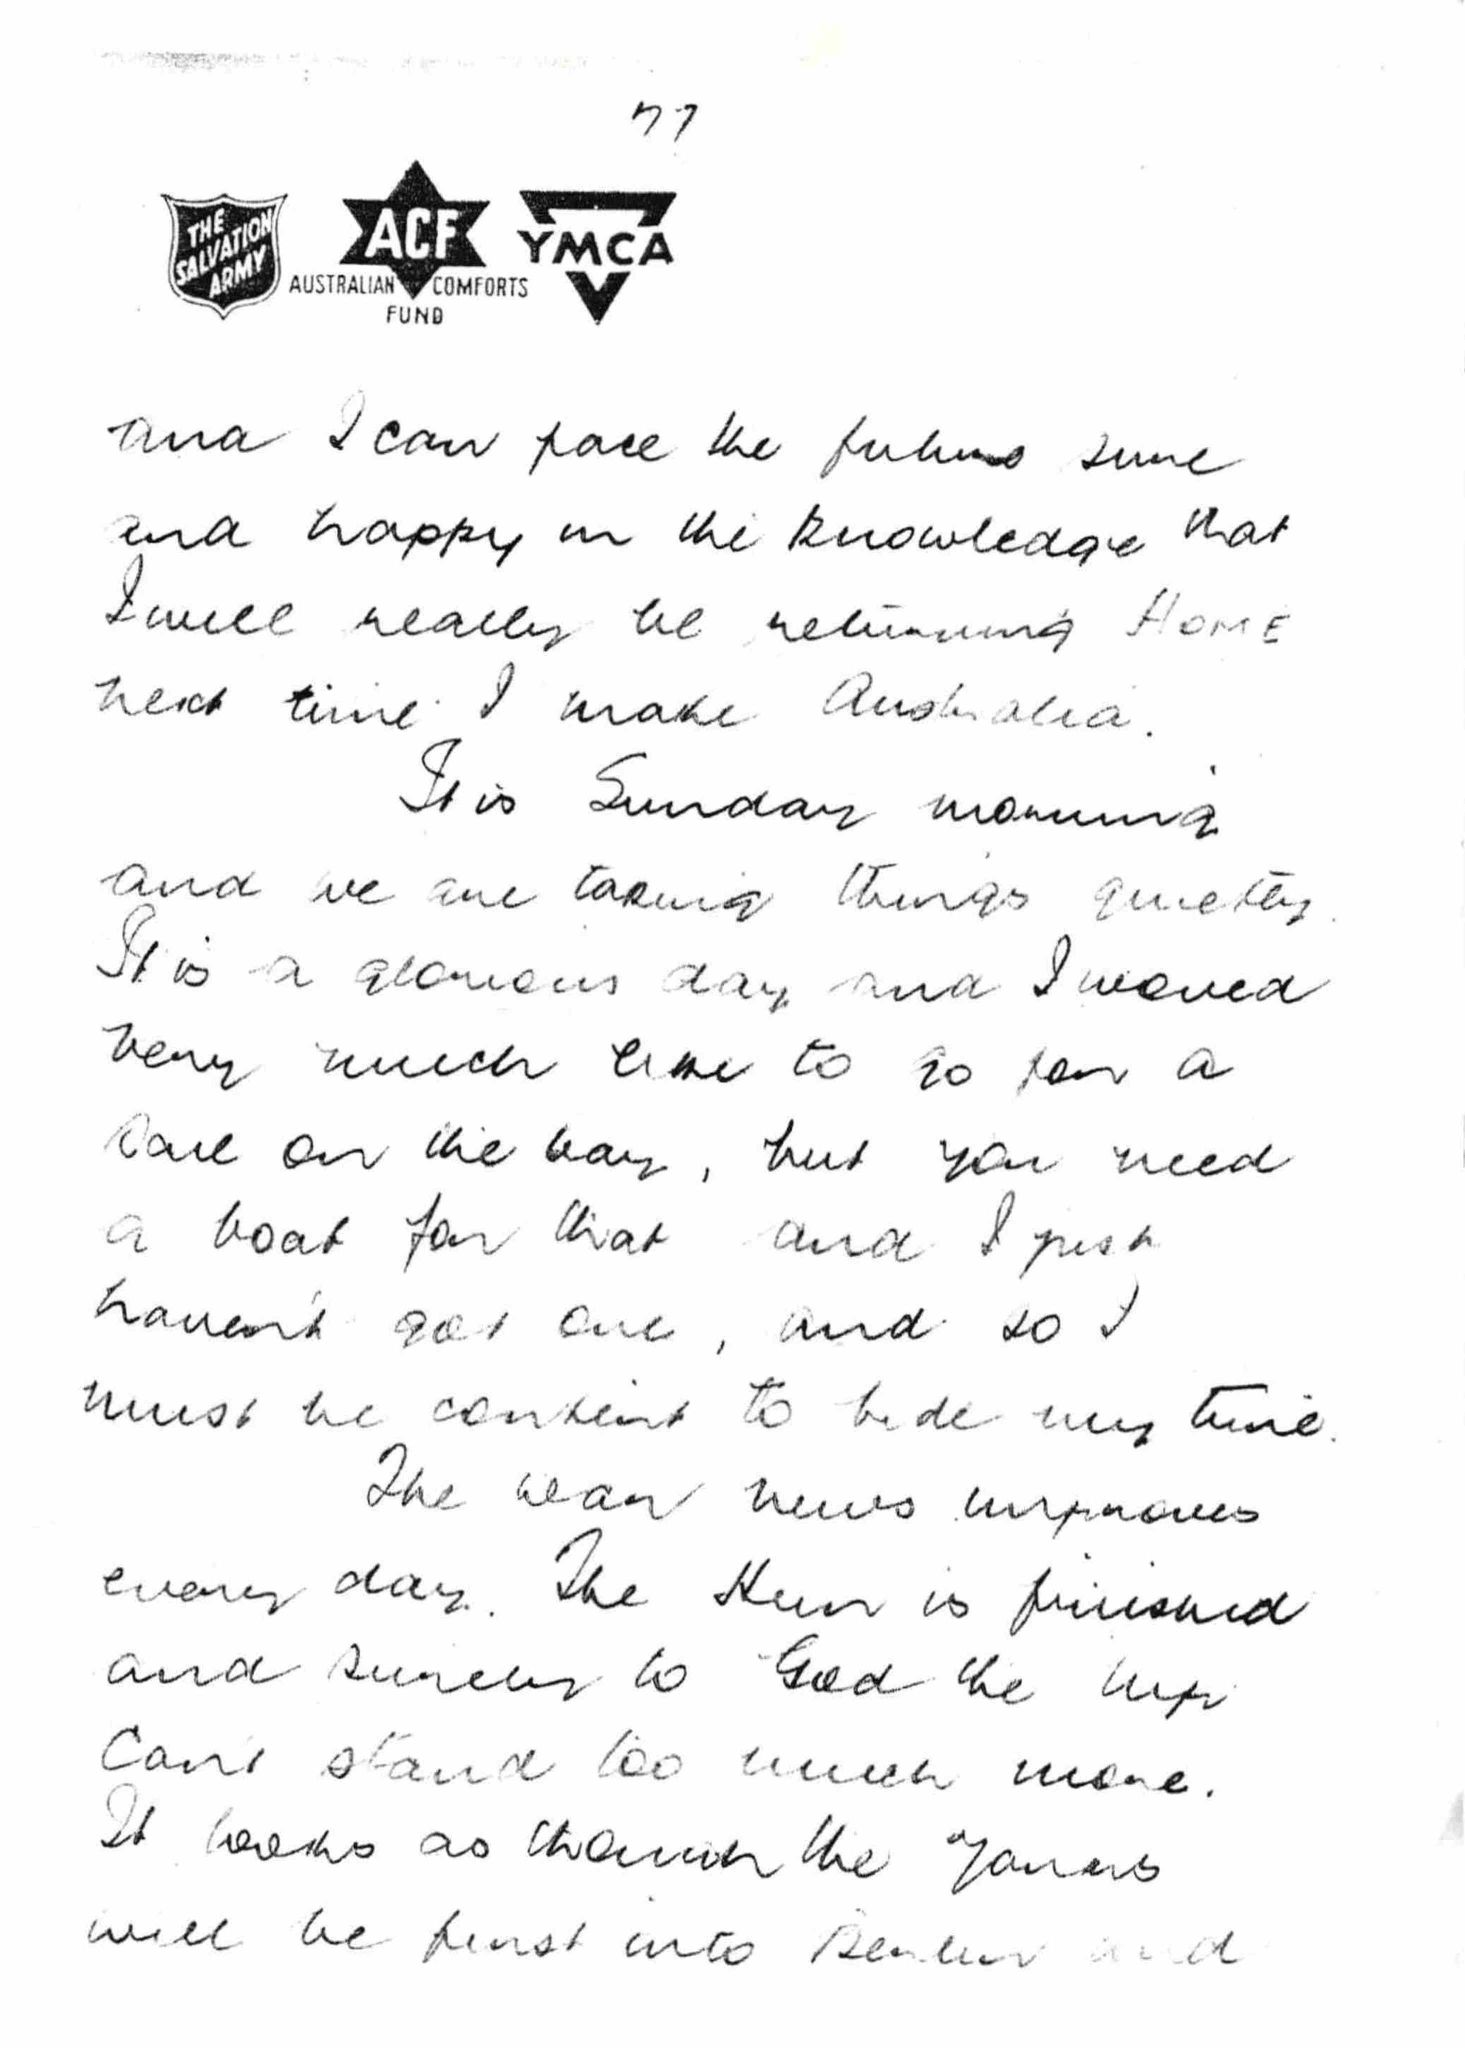 THE
SALVATION
ARMY
ACF
AUSTRALIAN COMFORTS
FUND
YMCA
and I can face the future sure
and happy in the knowledge that
I will really be returning HOME
next time I make Australia.
It is Sunday morning
and we are taking things quietly.
It is a glorious day and I would
very much like to go for a
sail on the bay, but you need
a boat for that and I just
haven't got one, and so I
must be content to bide my time.
The war news improves
every day. The Hun is finished
and surely to God the Nip
can't stand too much more.
It looks as though the Yanks
will be first into Berlin and